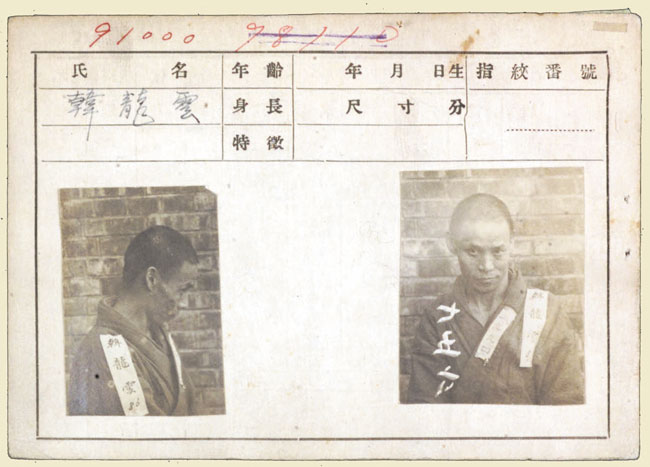 91000 98110
氏名 年齢 年月日生 指紋番號
韓龍雲 身長 尺寸分
特徵
韓龍雲
韓龍雲